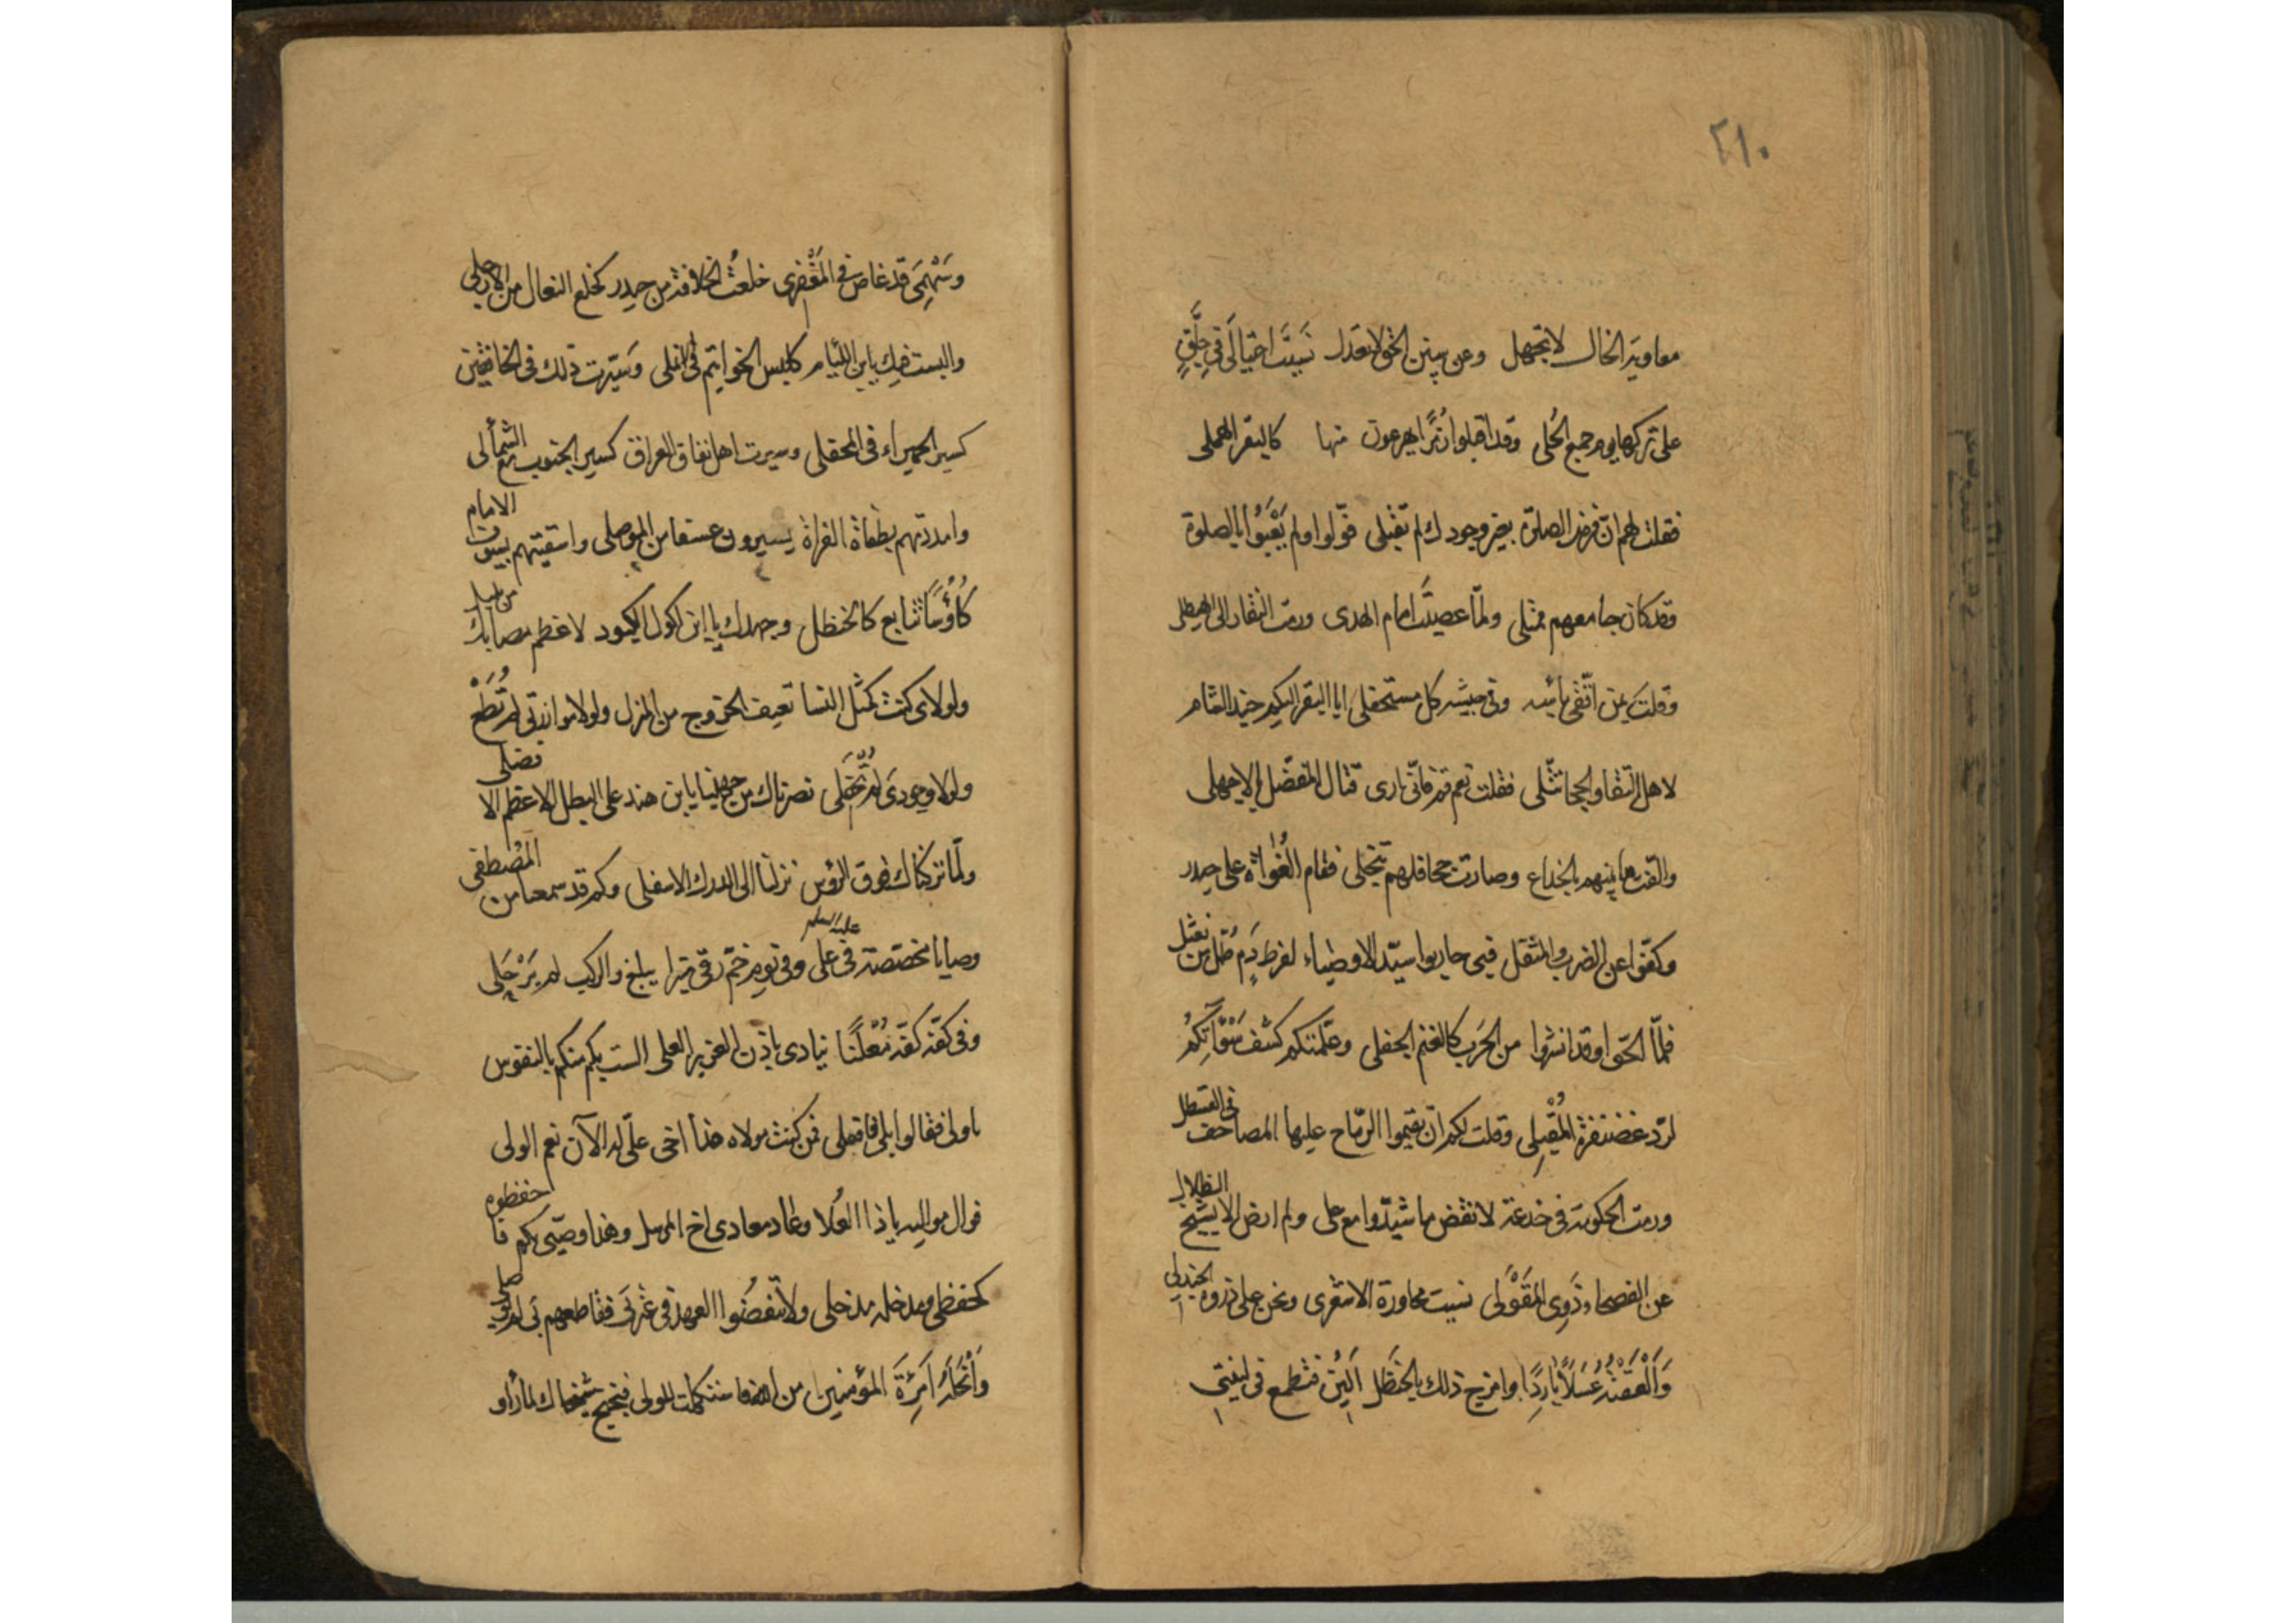 ٢١٠
معاوية الخال لا تجهل وعن سنن الحق لا تعدل نسيت احتيالى فى جلق
على تركها يوم جمع الحلى وقد اقبلوا زمرا يهرعون منها كالبقر الهملى
فقلت لهم ان فرض الصلوة بغير وجودك لم تقبلى فولوا ولم يعبؤا بالصلوة
وقد كان جامعهم ممتلى ولما عصيت امام الهدى ورمت النفار الى
وقلت بمن اتقى باسه وفى جيشه كل مستفحلى ايا البقر البكم جند الشام
لاهل التقا والحجا تبتلى فقلت نعم قم فانى ارى قتال المفضل
والقيتها بينهم بالخداع وصارت جحافلهم تنجلى فقام الغواة على حيدر
وكفوا عن الضرب والمثقل فبى حاربوا سيد الاوصياء لفرط دم طل من نعثل
فلما التقوا وقد انشروا من الحرب كالغنم الجفلى وعلمتكم كشف سوآتكم
لرد غضنفرة المقبلى وقلت لكم ان تقيموا الرماح عليها المصاحف فى القسطل
ورمت الحكومة فى خدعة لانقض ما شيدوا مع على ولم ارض الا بشيخ الظلال
عن الفصحا وذوى المقولى نسيت محاورة الاشعرى ونحن على ذروة الجندلى
والعقته عسلا باردا وامزج ذلك بالحنظل الين فتطمع فى لينتى
وسهمى قد غاص فى المفصلى خلعت الخلافة من حيدر كخلع النعال من الارجلى
والبست فيك يابن اللئام كلبس الخواتيم فى الانملى وسيرت ذلك فى الخافقين
كسير الحميراء فى المحفلى وسيرت اهل نفاق العراق كسير الجنوب مع الشمألى
وامددتهم بطغاة الفراة يسيرون عسفا من الموصلى واسقيتهم بسيوف الامام
كاؤسا تتابع كالحنظل وجهدك يا ابن اكول الكبود لاعظم مصابك من
ولولاى كنت كمثل النسا تعيف الخروج من المنزل ولولا موازرتى لم تطع
ولولا وجودى لم تخضلى نصرناك من جهلنا يابن هند على البطل الاعظم الا فضلى
ولما تركناك فوق الرؤس نزلنا الى الدرك الاسفلى وكم قد سمعنا من المصطفى
وصايا مخصصة فى على عليه السلم وفى يوم خم رقى منبرا يبلغ والركب لم يرحلى
وفى كفه كفه معلنا ينادى باذن العزيز العلى الست بكم منكم بالنفوس
باولى فقالوا بلى فافعلى فمن كنت مولاه هذا اخى على له الآن نعم الولى
فوال مواليه ياذا العلا وعاد معادى اخ المرسل وهذا وصيى بكم فا حفظوه
كحفظى ومدخله مدخلى ولا تنقضوا العهد فى عترتى فقاطعهم بى لم يوصلى
وانحله امرة المؤمنين من الله مستكملت الولى فبخبخ شيخاك لما راو